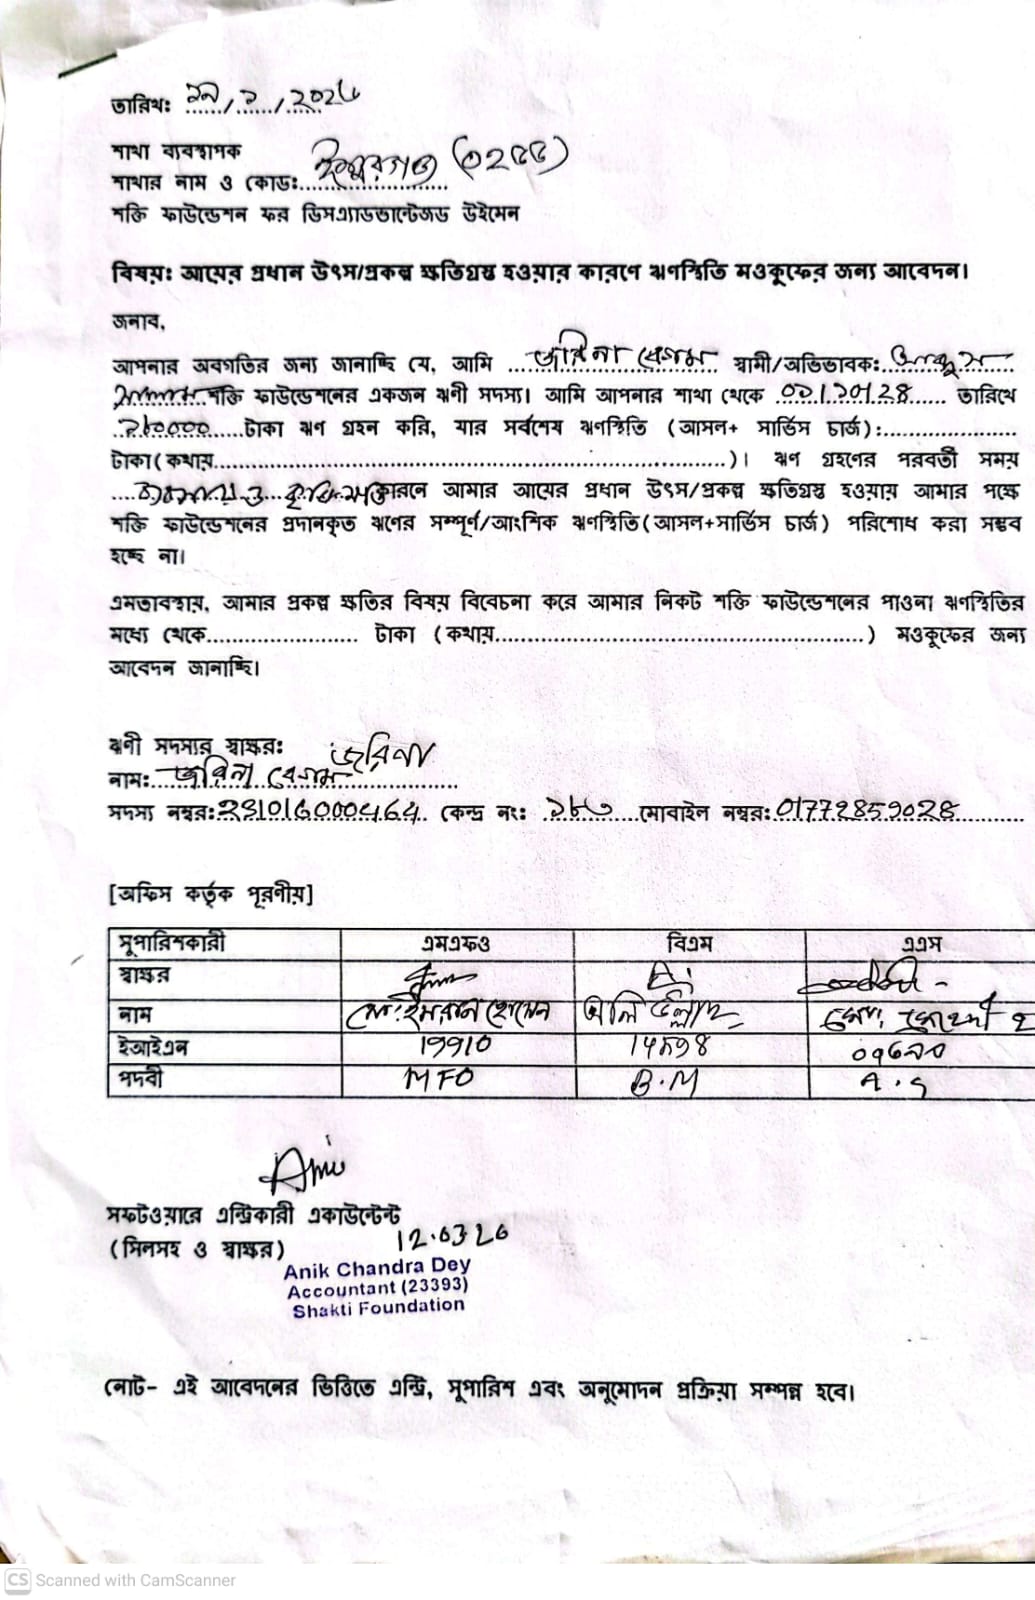 তারিখ:
শাখা ব্যবস্থাপক
শাখার নাম ও কোড: ঈশ্বরগঞ্জ (০২৫৫)
শক্তি ফাউন্ডেশন ফর ডিসএ্যাডভান্টেজড উইমেন
বিষয়: আয়ের প্রধান উৎস/প্রকল্প ক্ষতিগ্রস্থ হওয়ার কারণে ঋণস্থিতি মওকুফের জন্য আবেদন।
জনাব,
আপনার অবগতির জন্য জানাচ্ছি যে, আমি জরিনা বেগম স্বামী/অভিভাবক:
শক্তি ফাউন্ডেশনের একজন ঋণী সদস্য। আমি আপনার শাখা থেকে তারিখে
১৮০০০০ টাকা ঋণ গ্রহন করি, যার সর্বশেষ ঋণস্থিতি (আসল+ সার্ভিস চার্জ):
টাকা(কথায়)। ঋণ গ্রহণের পরবর্তী সময়
ব্যবসায় ও কৃষি কারনে আমার আয়ের প্রধান উৎস/প্রকল্প ক্ষতিগ্রস্থ হওয়ায় আমার পক্ষে
শক্তি ফাউন্ডেশনের প্রদানকৃত ঋণের সম্পূর্ণ/আংশিক ঋণস্থিতি(আসল+সার্ভিস চার্জ) পরিশোধ করা সম্ভব
হচ্ছে না।
এমতাবস্থায়, আমার প্রকল্প ক্ষতির বিষয় বিবেচনা করে আমার নিকট শক্তি ফাউন্ডেশনের পাওনা ঋণস্থিতির
মধ্যে থেকে টাকা (কথায়) মওকুফের জন্য
আবেদন জানাচ্ছি।
ঋণী সদস্যর স্বাক্ষর: জরিনা
নাম: জরিনা বেগম
সদস্য নম্বর: কেন্দ্র নং: ১৮৩ মোবাইল নম্বর: 01772859028
[অফিস কর্তৃক পূরণীয়]
সুপারিশকারী এমএফও বিএম এএস
স্বাক্ষর
নাম মো: ইমরান হোসেন অলি উল্লাহ মোঃ
ইআইএন 19910
পদবী MFO B.M A.S
সফটওয়ারে এন্ট্রিকারী একাউন্টেন্ট
(সিলসহ ও স্বাক্ষর) 12.03.26
Anik Chandra Dey
Accountant (23393)
Shakti Foundation
নোট- এই আবেদনের ভিত্তিতে এন্ট্রি, সুপারিশ এবং অনুমোদন প্রক্রিয়া সম্পন্ন হবে।
CS Scanned with CamScanner